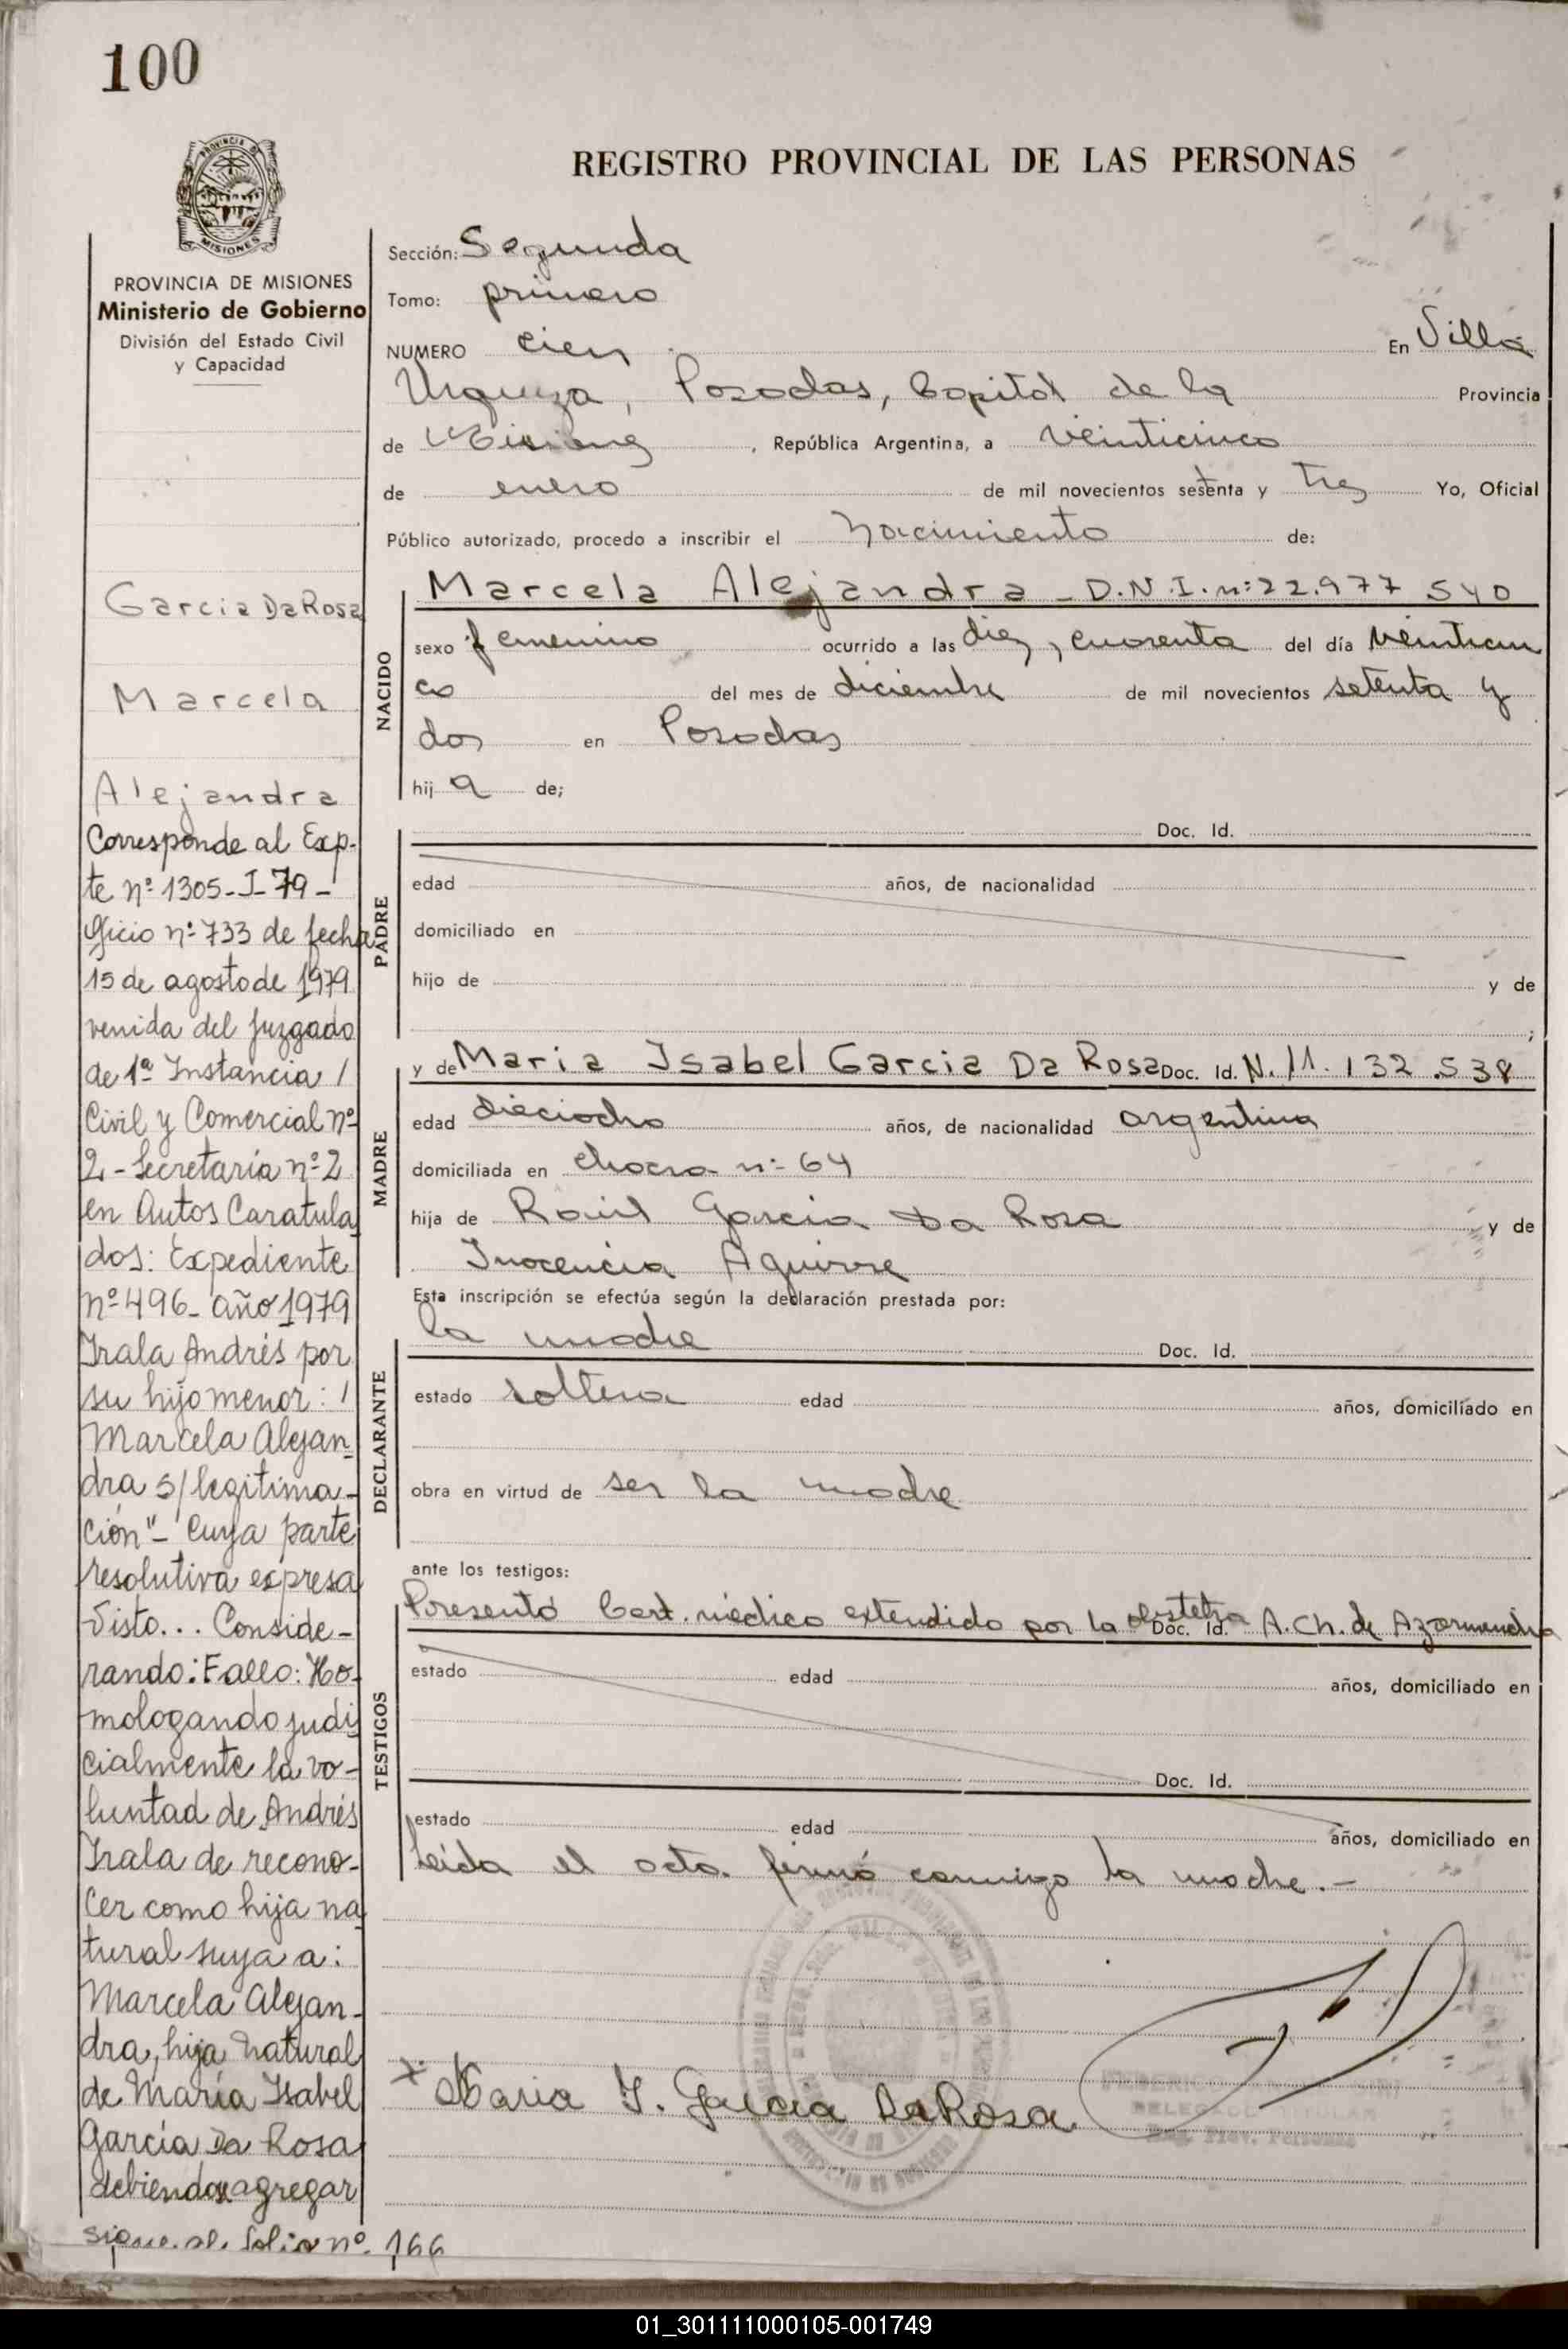 100
PROVINCIA DE
MISIONES
PROVINCIA DE MISIONES
Ministerio de Gobierno
División del Estado Civil
y Capacidad
REGISTRO PROVINCIAL DE LAS PERSONAS
Sección: Segunda
Tomo: primero
NUMERO cien En Villa
Urquiza, Posadas, Capital de la Provincia
de Misiones, República Argentina, a veinticinco
de enero de mil novecientos setenta y tres Yo, Oficial
Público autorizado, procedo a inscribir el nacimiento de:
Garcia Da Rosa
Marcela
Alejandra
Corresponde al Exp-
te nº 1305-I-79-
Oficio nº 733 de fecha
15 de agosto de 1979
venida del Juzgado
de 1ª Instancia /
Civil y Comercial nº
2 - Secretaría nº 2
en Autos Caratula
dos: Expediente
nº 496- año 1979
Irala Andrés por
su hijo menor: /
Marcela Alejan
dra s/ legitima-
ción"- Cuya parte
resolutiva expresa
Visto... Conside-
rando: Fallo: Ho-
mologando judi
cialmente la vo-
luntad de Andrés
Irala de recono-
cer como hija na
tural suya a:
Marcela Alejan-
dra, hija natural
de María Isabel
García Da Rosa
debiendose agregar
sigue al folio nº 166
NACIDO
Marcela Alejandra - D.N.I. nº: 22.977 540
sexo femenino ocurrido a las diez, cuarenta del día veinticin
co del mes de diciembre de mil novecientos setenta y
dos en Posadas
hij a de;
PADRE
Doc. Id.
edad años, de nacionalidad
domiciliado en
hijo de y de
;
MADRE
y de Maria Isabel Garcia Da Rosa Doc. Id. N. 11.132.538
edad dieciocho años, de nacionalidad argentina
domiciliada en chacra nº 64
hija de Raúl Garcia Da Rosa y de
Inocencia Aguirre
Esta inscripción se efectúa según la declaración prestada por:
DECLARANTE
la madre Doc. Id.
estado soltera edad años, domiciliado en
obra en virtud de ser la madre
ante los testigos:
TESTIGOS
Presentó Cert. médico extendido por la obstetra Doc. Id. A. Ch. de
estado edad años, domiciliado en
Doc. Id.
estado edad años, domiciliado en
leida el acta firmó conmigo la madre.-
x Maria I. Garcia Da Rosa
01_301111000105-001749